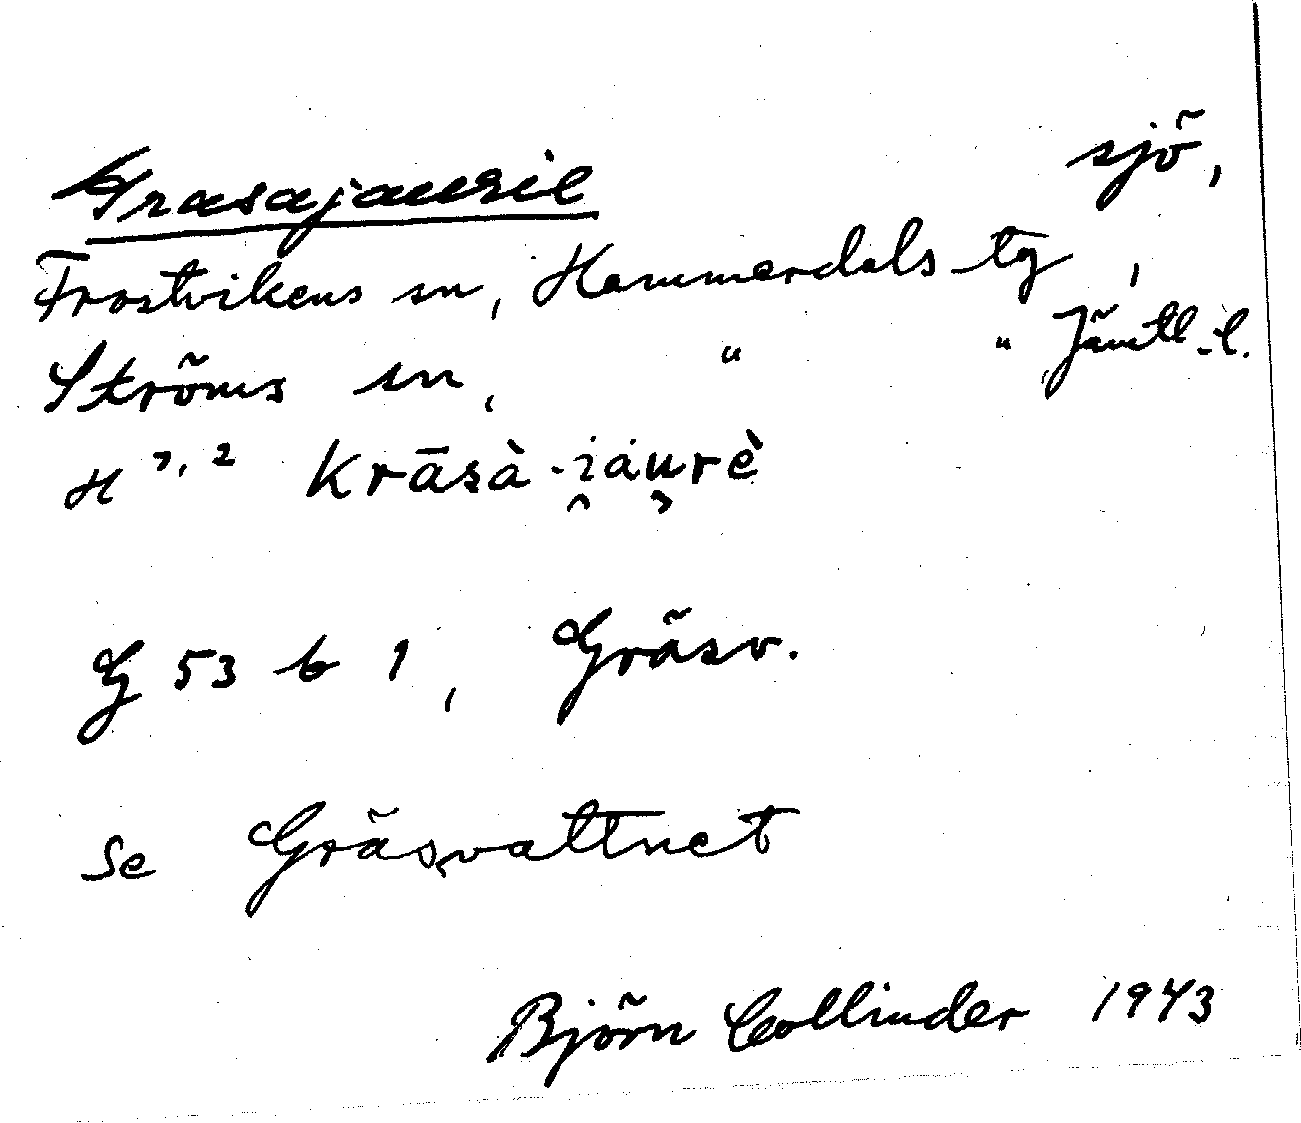 Grasajaurie sjö,
Frostvikens sn, Hammerdals tg,
Ströms sn, " " Jämtl. l.
H 7, 2 krāsà-i̯au̯rè
G 53 b 1, Gräsv.
Se Gräsvattnet
Björn Collinder 1943